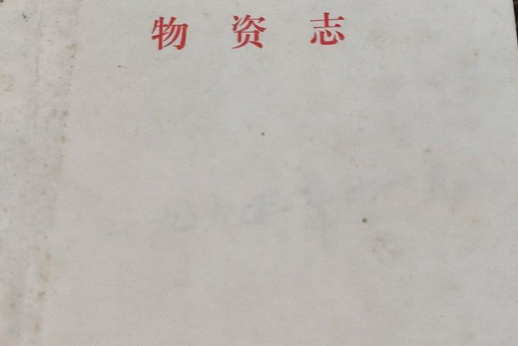 物资志